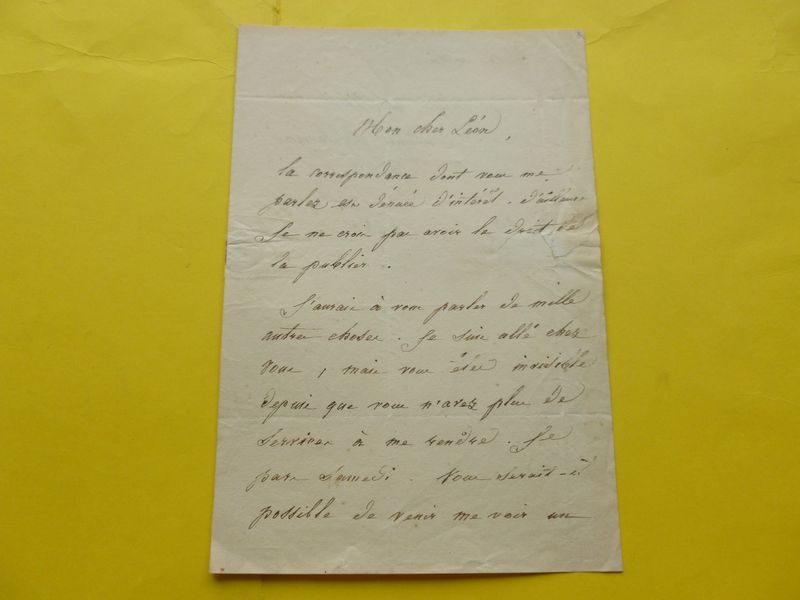 Mon cher Léon,
la correspondance dont vous me
parlez est dénuée d'intérêt. d'ailleurs
Je ne crois pas avoir le droit de
la publier.
J'aurais à vous parler de mille
autres choses. Je suis allé chez
vous, mais vous êtes invisible
depuis que vous n'avez plus de
services à me rendre. Je
pars Samedi. Vous serait-il
possible de venir me voir un